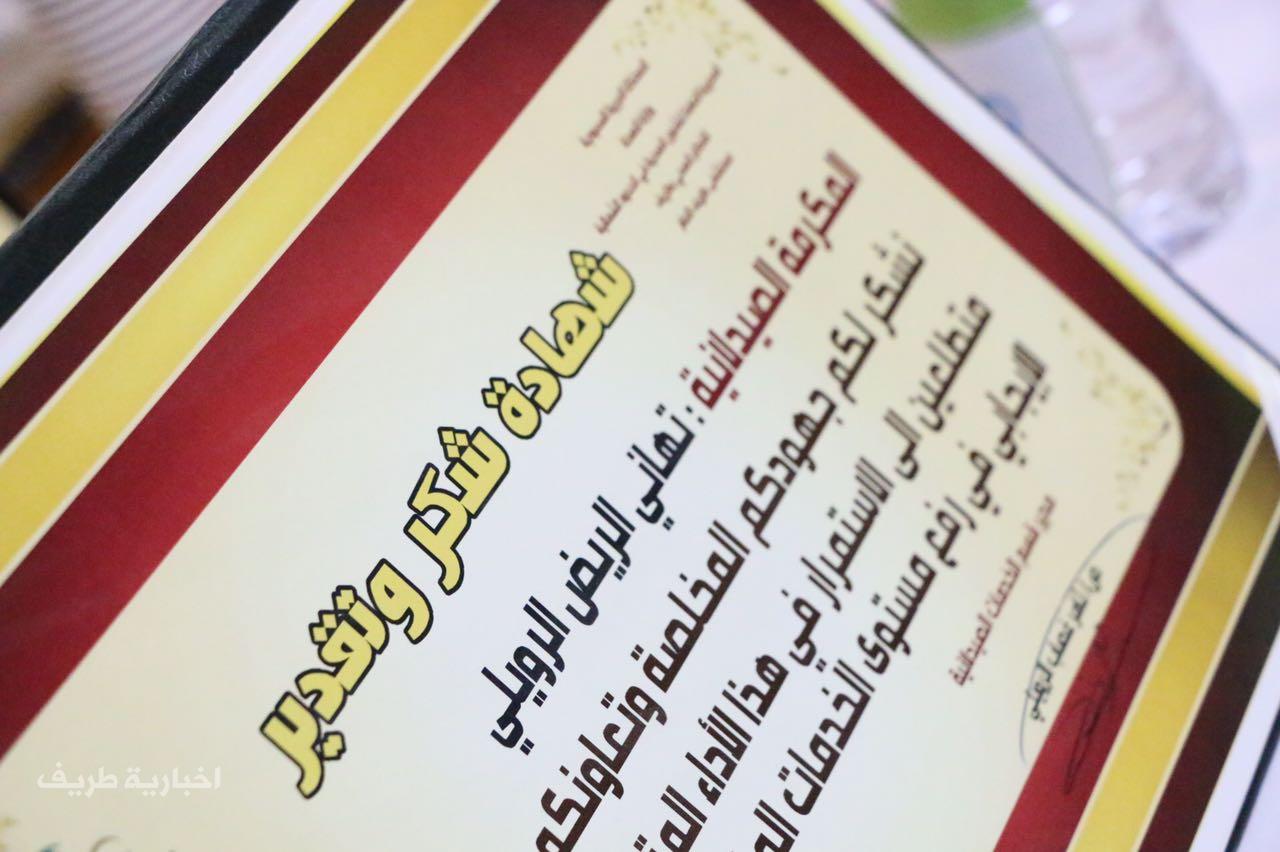 المملكة العربية السعودية
وزارة الصحة
شهادة شكر وتقدير
المكرمة الصيدلانية : تهاني الريض الرويلي
نشكر لكم جهودكم المخلصة وتعاونكم
متطلعين الى الاستمرار في هذا الأداء
الإيجابي في رفع مستوى الخدمات
مدير قسم الخدمات الصيدلانية
اخبارية طريف